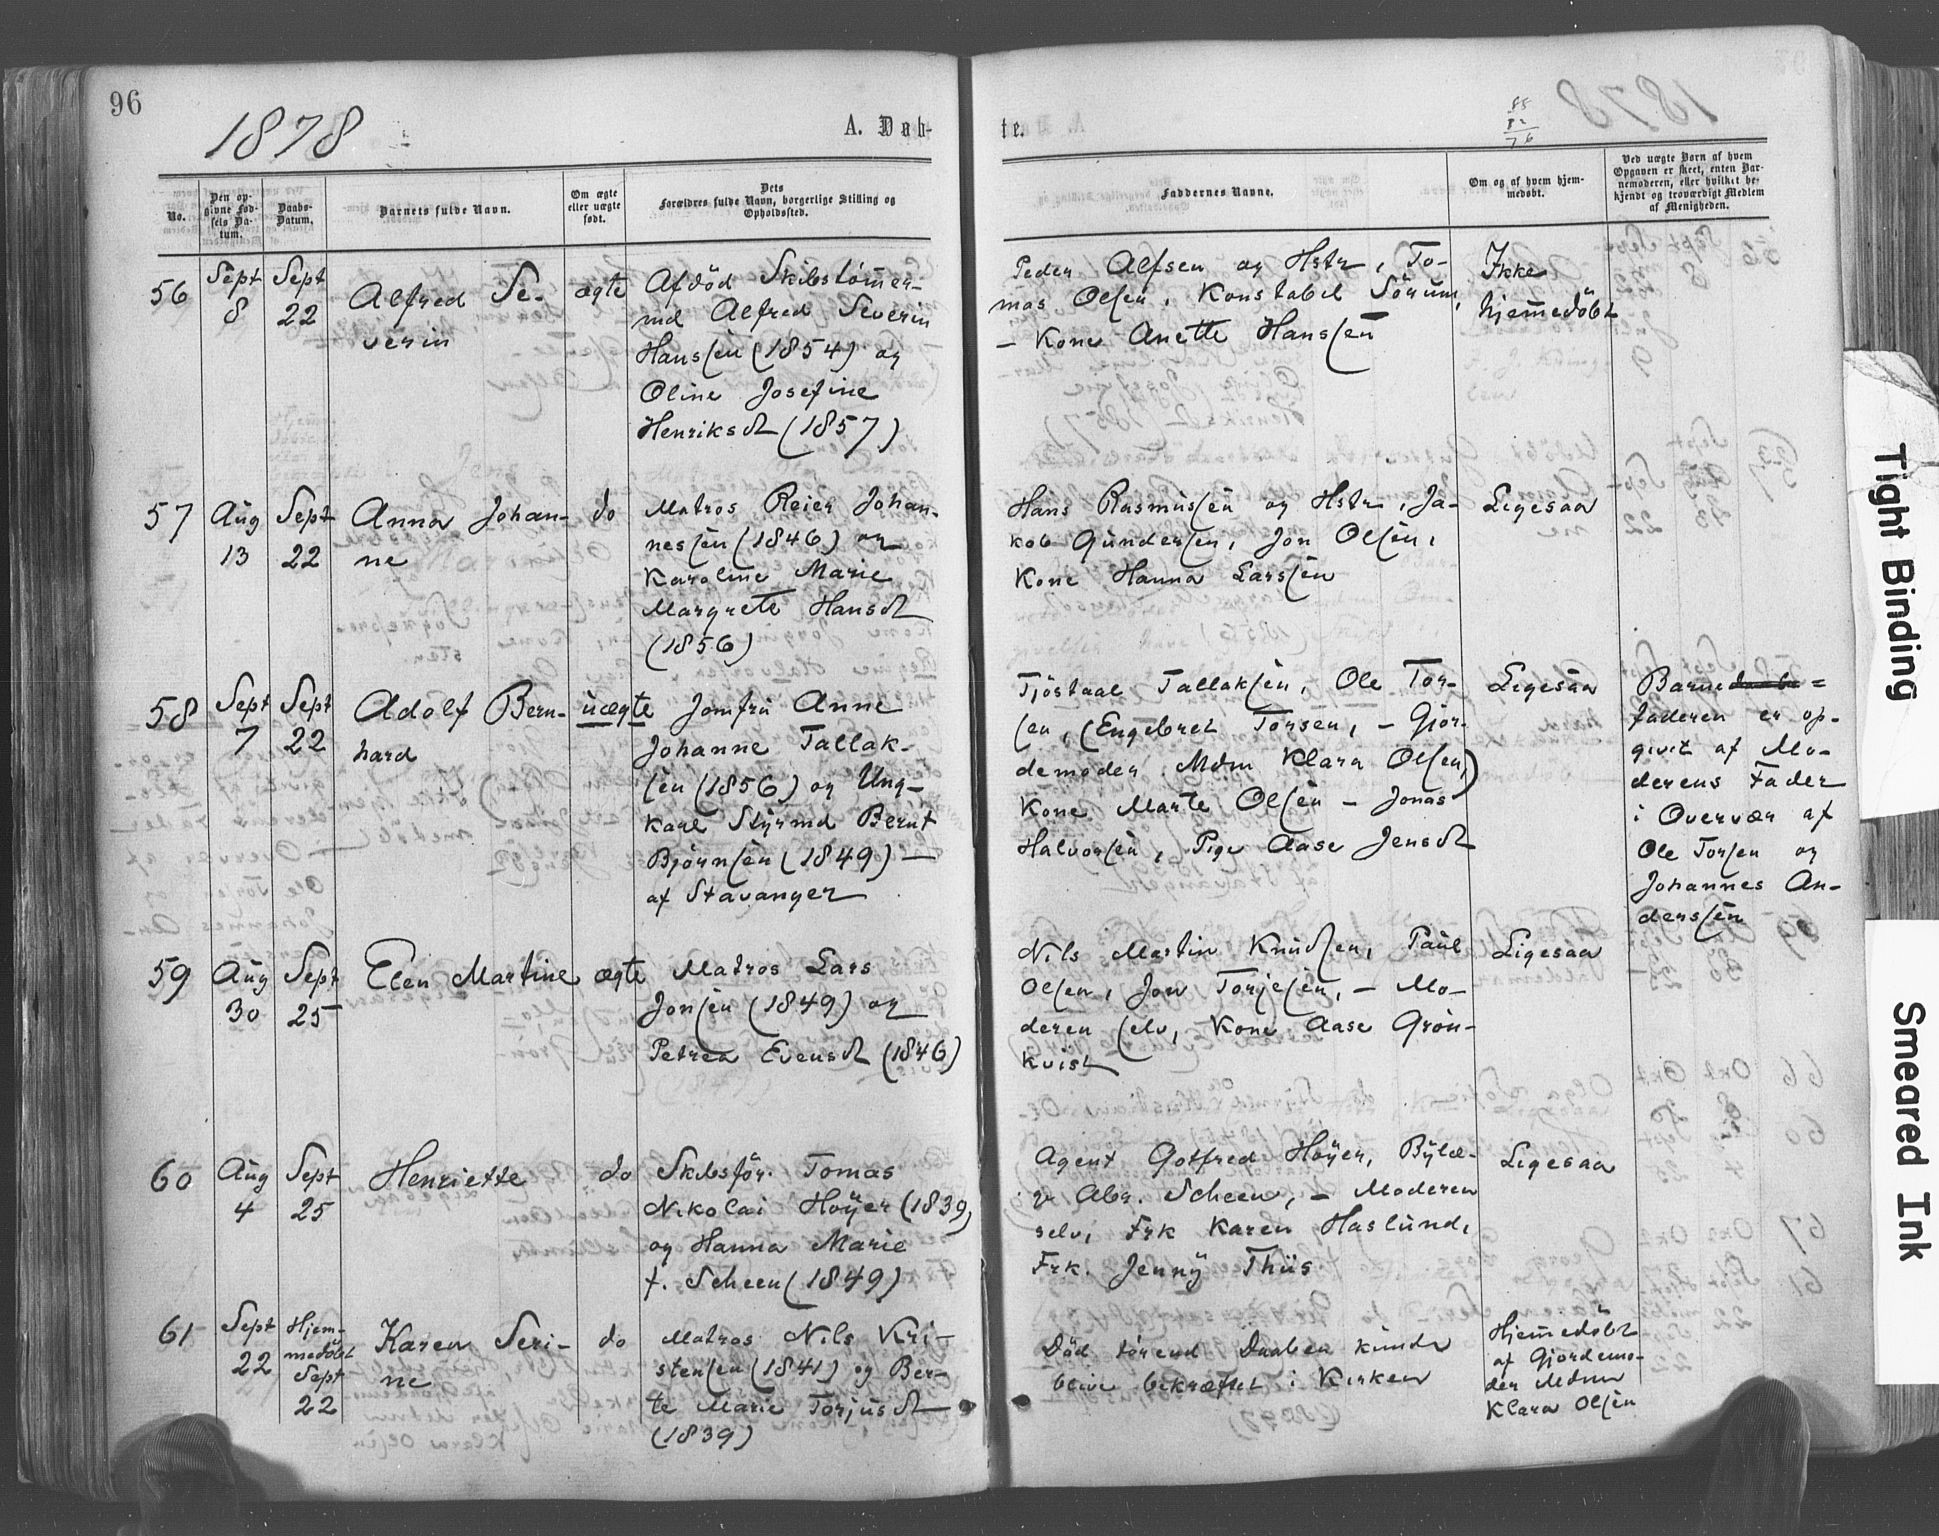 96
1878
A. Døb-
te.
1878
88
12
76
No.
Den op-
givne Fød-
sels Da-
tum.
Daabs-
Datum.
Barnets fulde Navn.
Om ægte
eller uægte
født.
Dets
Forældres fulde Navn, borgerlige Stilling og
Opholdssted.
Faddernes Navne.
Om og af hvem hjem-
medøbt.
Ved uægte Børn af hvem
Opgaven er skeet, enten Bar-
nemoderen, eller hvilket be-
kjendt og troværdigt Medlem
af Menigheden.
56
Sept
8
Sept
22
Alfred Se-
verin
ægte
Afdöd Skibstömmer-
md Alfred Severin
Hanssen (1854) og
Oline Josefine
Henriksdt (1857)
Peder Alfsen og Hstr, To-
mas Olsen, Konstabel Sörum,
– Kone Anette Hanssen
Ikke
hjemmedöbt
57
Aug
13
Sept
22
Anna Johan-
ne
do
Matros Reier Johan-
nessen (1846) og
Karoline Marie
Margrete Hansdt
(1856)
Hans Rasmussen og Hstr, Ja-
kob Gundersen, Jon Olsen,
Kone Hanna Larssen
Ligesaa
58
Sept
7
Sept
22
Adolf Bern-
hard
uægte
Jomfru Anne
Johanne Tallak-
sen (1856) og Ung-
karl Styrmd Bernt
Bjørnsen (1849) –
af Stavanger
Tjöstaal Tallaksen, Ole Tor-
sen, (Engebret Torsen, – Gjor-
demoder Mdm Klara Olsen,)
Kone Marte Olsen – Jonas
Halvorsen, Pige Aase Jensdt
Ligesaa
Barne=
faderen er op-
givet af Mo-
derens Fader
i Overvær af
Ole Torsen og
Johannes An-
derssen
59
Aug
30
Sept
25
Elen Martine
ægte
Matros Lars
Jonsen (1849) og
Petrea Evensdt (1846)
Nils Martin Knudsen, Paul
Olsen, Jon Torjesen, – Mo-
deren selv, Kone Aase Grön-
kvist
Ligesaa
60
Aug
4
Sept
25
Henriette
do
Skibsför. Tomas
Nikolai Höyer (1839)
og Hanna Marie
f. Scheen (1849)
Agent Gotfred Höyer, Bylæ-
ge Abr. Scheen, – Moderen
selv, Frk Karen Haslund,
Frk. Jenny Thiis
Ligesaa
61
Sept
22
Hjem-
medöbt
Sept
22
Karen Seri-
ne
do
Matros Nils Kri-
stensen (1841) og Ber-
te Marie Torjusdt
(1839)
Död förend Daaben kunde
blive bekræftet i Kirken
Hjemmedöbt
af Gjordemo-
der Mdm
Klara Olsen
Tight Binding
Smeared Ink